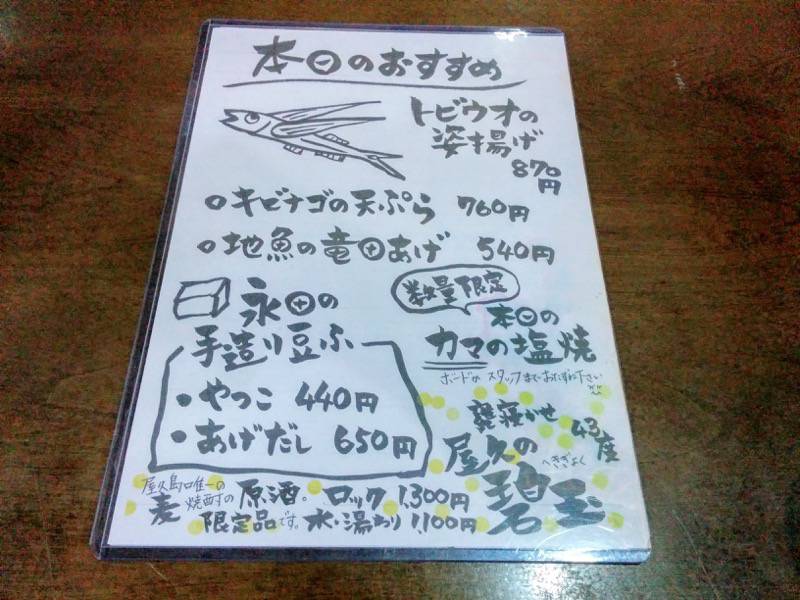 本日のおすすめ
トビウオの
姿揚げ
870円
○キビナゴの天ぷら 760円
○地魚の竜田あげ 540円
永田の
手造り豆ふ
・やっこ 440円
・あげだし 650円
数量限定
本日の
カマの塩焼
ボードか スタッフまでおたずね下さい
甕寝かせ 43度
屋久の
へきぎょく
碧玉
屋久島唯一の
麦焼酎の原酒。ロック 1,300円
限定品です。水・湯わり 1,100円